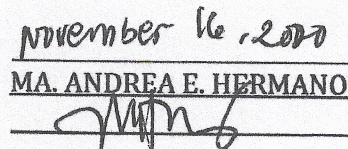 November 16, 2000
MA. ANDREA E. HERMANO